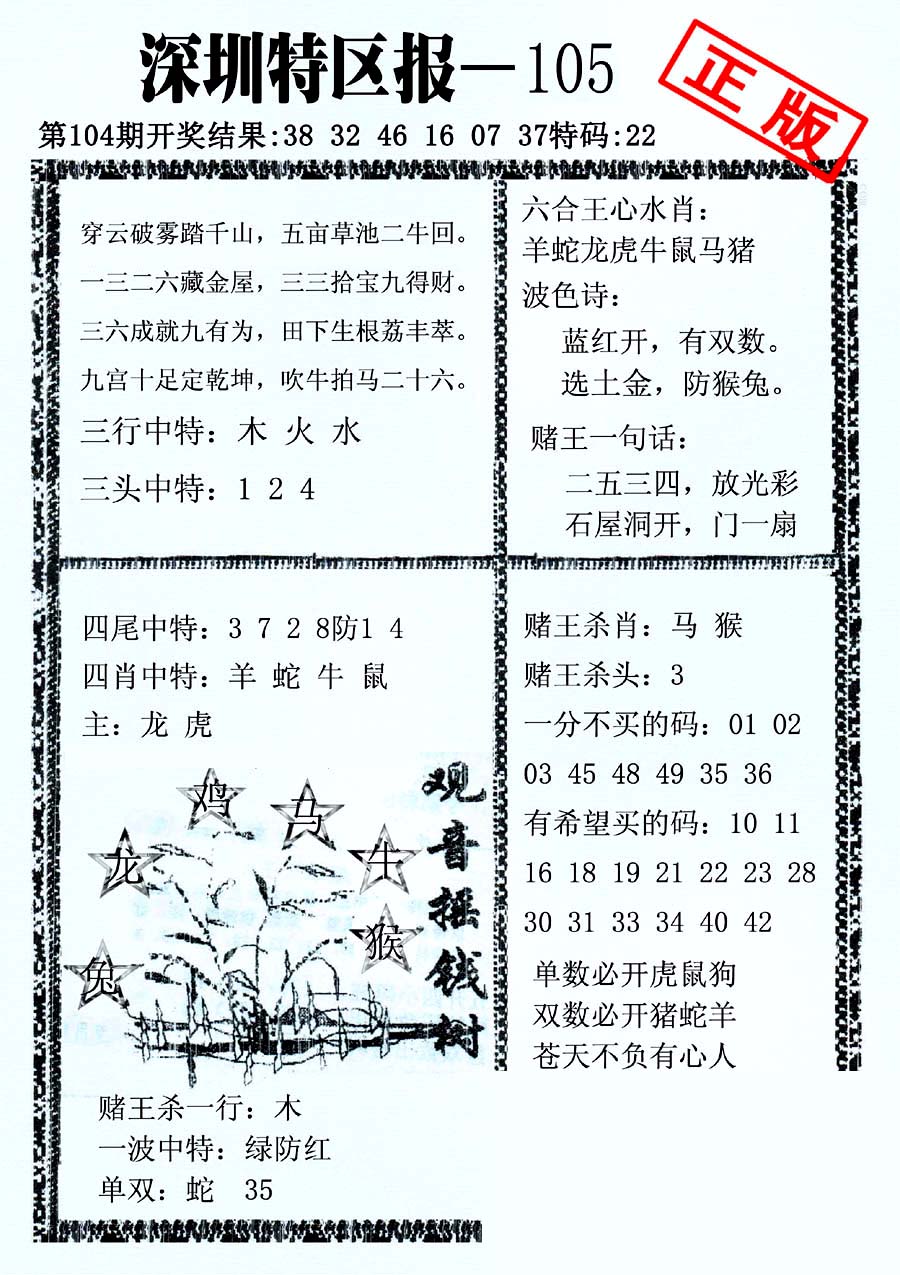 深圳特区报—105
正版
第104期开奖结果:38 32 46 16 07 37特码:22
穿云破雾踏千山，五亩草池二牛回。
一三二六藏金屋，三三拾宝九得财。
三六成就九有为，田下生根荔丰萃。
九宫十足定乾坤，吹牛拍马二十六。
三行中特：木 火 水
三头中特：1 2 4
六合王心水肖：
羊蛇龙虎牛鼠马猪
波色诗：
蓝红开，有双数。
选土金，防猴兔。
赌王一句话：
二五三四，放光彩
石屋洞开，门一扇
四尾中特：3 7 2 8防1 4
四肖中特：羊 蛇 牛 鼠
主：龙 虎
鸡
马
龙
牛
猴
兔
观音摇钱树
赌王杀一行：木
一波中特：绿防红
单双：蛇 35
赌王杀肖：马 猴
赌王杀头：3
一分不买的码：01 02
03 45 48 49 35 36
有希望买的码：10 11
16 18 19 21 22 23 28
30 31 33 34 40 42
单数必开虎鼠狗
双数必开猪蛇羊
苍天不负有心人